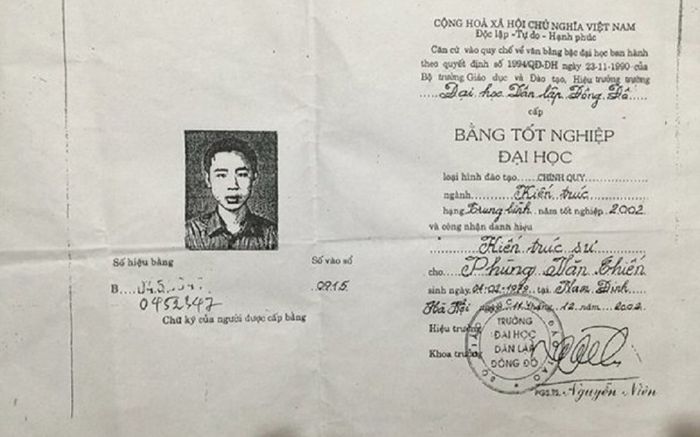 Số hiệu bằng
Số vào sổ
B
0915
0452347
Chữ ký của người được cấp bằng
CỘNG HOÀ XÃ HỘI CHỦ NGHĨA VIỆT NAM
Độc lập -Tự do - Hạnh phúc
Căn cứ vào quy chế về văn bằng bậc đại học ban hành
theo quyết định số 1994/QĐ-ĐH ngày 23-11-1990 của
Bộ trưởng Giáo dục và Đào tạo, Hiệu trưởng trường
Đại học Dân lập Đông Đô
cấp
BẰNG TỐT NGHIỆP
ĐẠI HỌC
loại hình đào tạo CHÍNH QUY
ngành Kiến trúc
hạng Trung bình năm tốt nghiệp 2002
và công nhận danh hiệu
Kiến trúc sư
cho Phùng Văn Thiến
sinh ngày 01-02-1979 tại Nam Định
Hà Nội ngày 11 tháng 12 năm 2002
Hiệu trưởng
Khoa trưởng
TRƯỜNG
ĐẠI HỌC
DÂN LẬP
ĐÔNG ĐÔ
PGS.TS. Nguyễn Niên